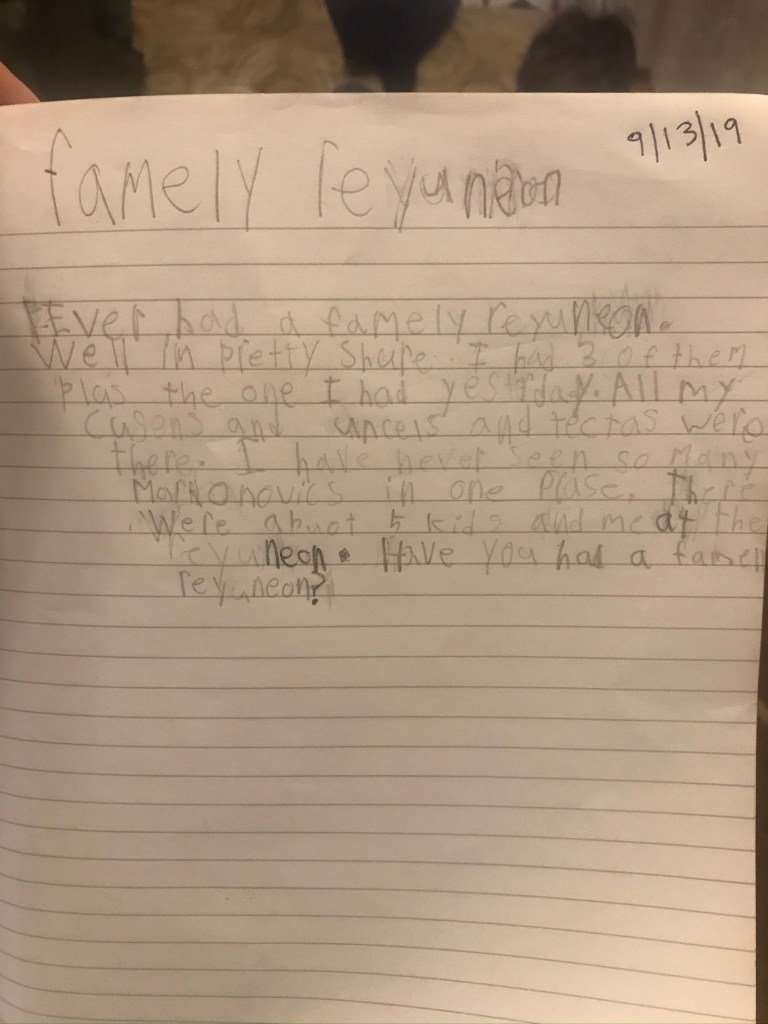 9/13/19
famely reyuneon
Ever had a famely reyuneon.
Well im pretty Shure. I had 3 of them
plas the one I had yestrday. All my
Cusens and uncels and tectas were
there. I have never seen so many
Markonovics in one plase. There
Were abuot 5 kids and me at the
reyuneon. Have you had a famel
reyuneon?